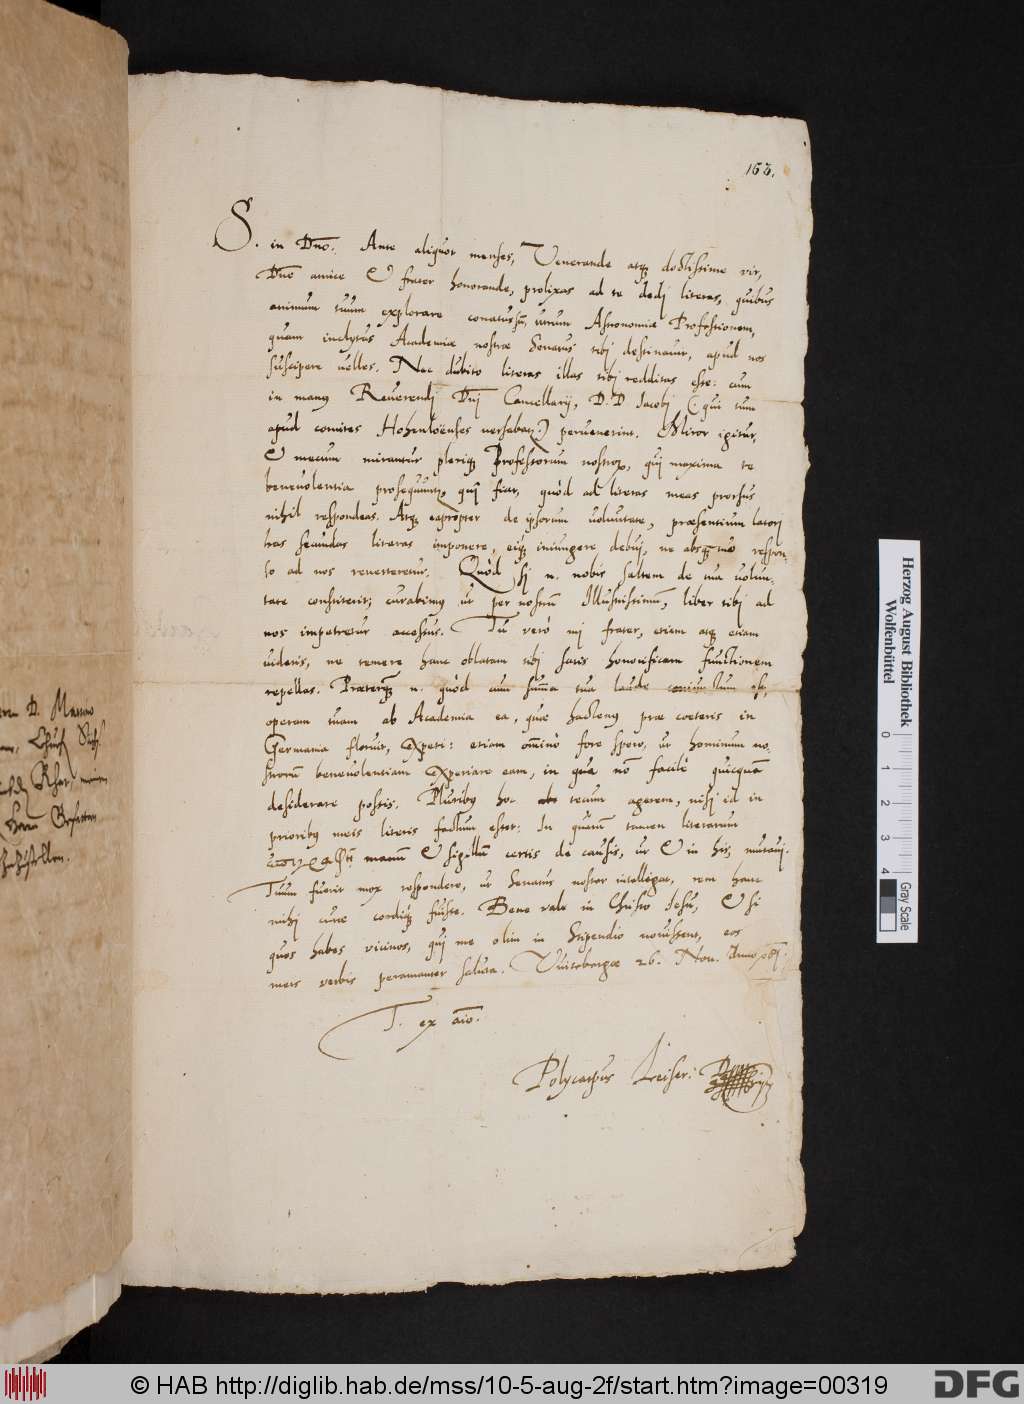 163.
S. in Dno. Ante aliquot menses, Venerande atq doctissime vir,
Dno amice & frater honorande, prolixas ad te dedj literas, quibus
animum tuum explorare conatus sū, utrum Astronomiæ Professionem,
quam inclytus Academiæ nostræ Senatus tibj destinavit, apud nos
suscipere velles. Nec dubito literas illas tibj redditas esse: cum
in manus Reverendj Dnj Cancellarij, D. D Jacobj (: qui tum
apud comites Hohenloënses versabat :) pervenerint. Miror igitur,
& mecum mirantur pleriq Professorum nostrorū, quj maxima te
benevolentia prosequunt, quj fiat, quòd ad literas meas prorsus
nihil respondeas. Atq eapropter de ipsorum voluntate, præsentium latorj
has secundas literas imponere, eiq iniungere debuj, ne absq tuo respon-
so ad nos reverteretur. Quòd sj n. nobis saltem de tua volun-
tate constiterit; curabimus ut per nostrū Illustrissimū, liber tibj ad
nos impetretur accessus. Tu verò mj frater, etiam atq etiam
videris, ne temere hanc oblatam tibj satis honorificam functionem
repellas. Præterq n. quòd cum summa tua laude coniunctum est,
operam tuam ab Academia ea, quæ hactenus præ cæteris in
Germania floruit, expeti: etiam omninò fore spero, ut hominum no-
strorū benevolentiam experiare eam, in qua nō facilè quicquā
desiderare possis. Pluribus hoc tecum agerem, nisj id in
prioribus meis literis factum esset: In quarum tamen literarum
manū & sigillū certis de causis, ut & in his, mutavj.
Tuum fuerit mox respondere, ut Senatus noster intelligat, rem hanc
mihj curæ cordiq fuisse. Bene vale in Christo Jesu, & si
quos habes vicinos, quj me olim in Stipendio noverunt, eos
meis verbis peramanter saluta. Vuitebergæ 26. Nov. Anno 81.
T. ex aīo.
Polycarpus Leiser: D
D. Marco
Churf. Sächs.
Rhat, meinem
Herrn Gefattern
Herzog August Bibliothek
Wolfenbüttel
0 1 2 3 4
Gray Scale
© HAB http://diglib.hab.de/mss/10-5-aug-2f/start.htm?image=00319
DFG